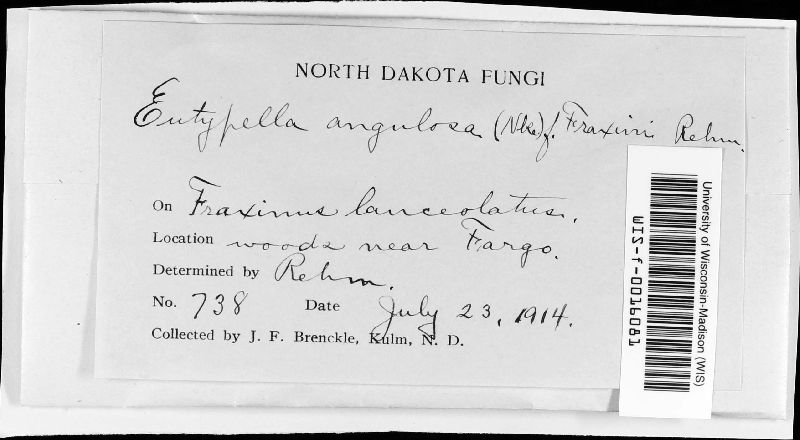 NORTH DAKOTA FUNGI
Eutypella angulosa (Nke) f. Fraxini Rehm.
On Fraxinus lanceolatus.
Location woods near Fargo.
Determined by Rehm.
No. 738 Date July 23, 1914.
Collected by J. F. Brenckle, Kulm, N. D.
University of Wisconsin-Madison (WIS)
WIS-f-0016081